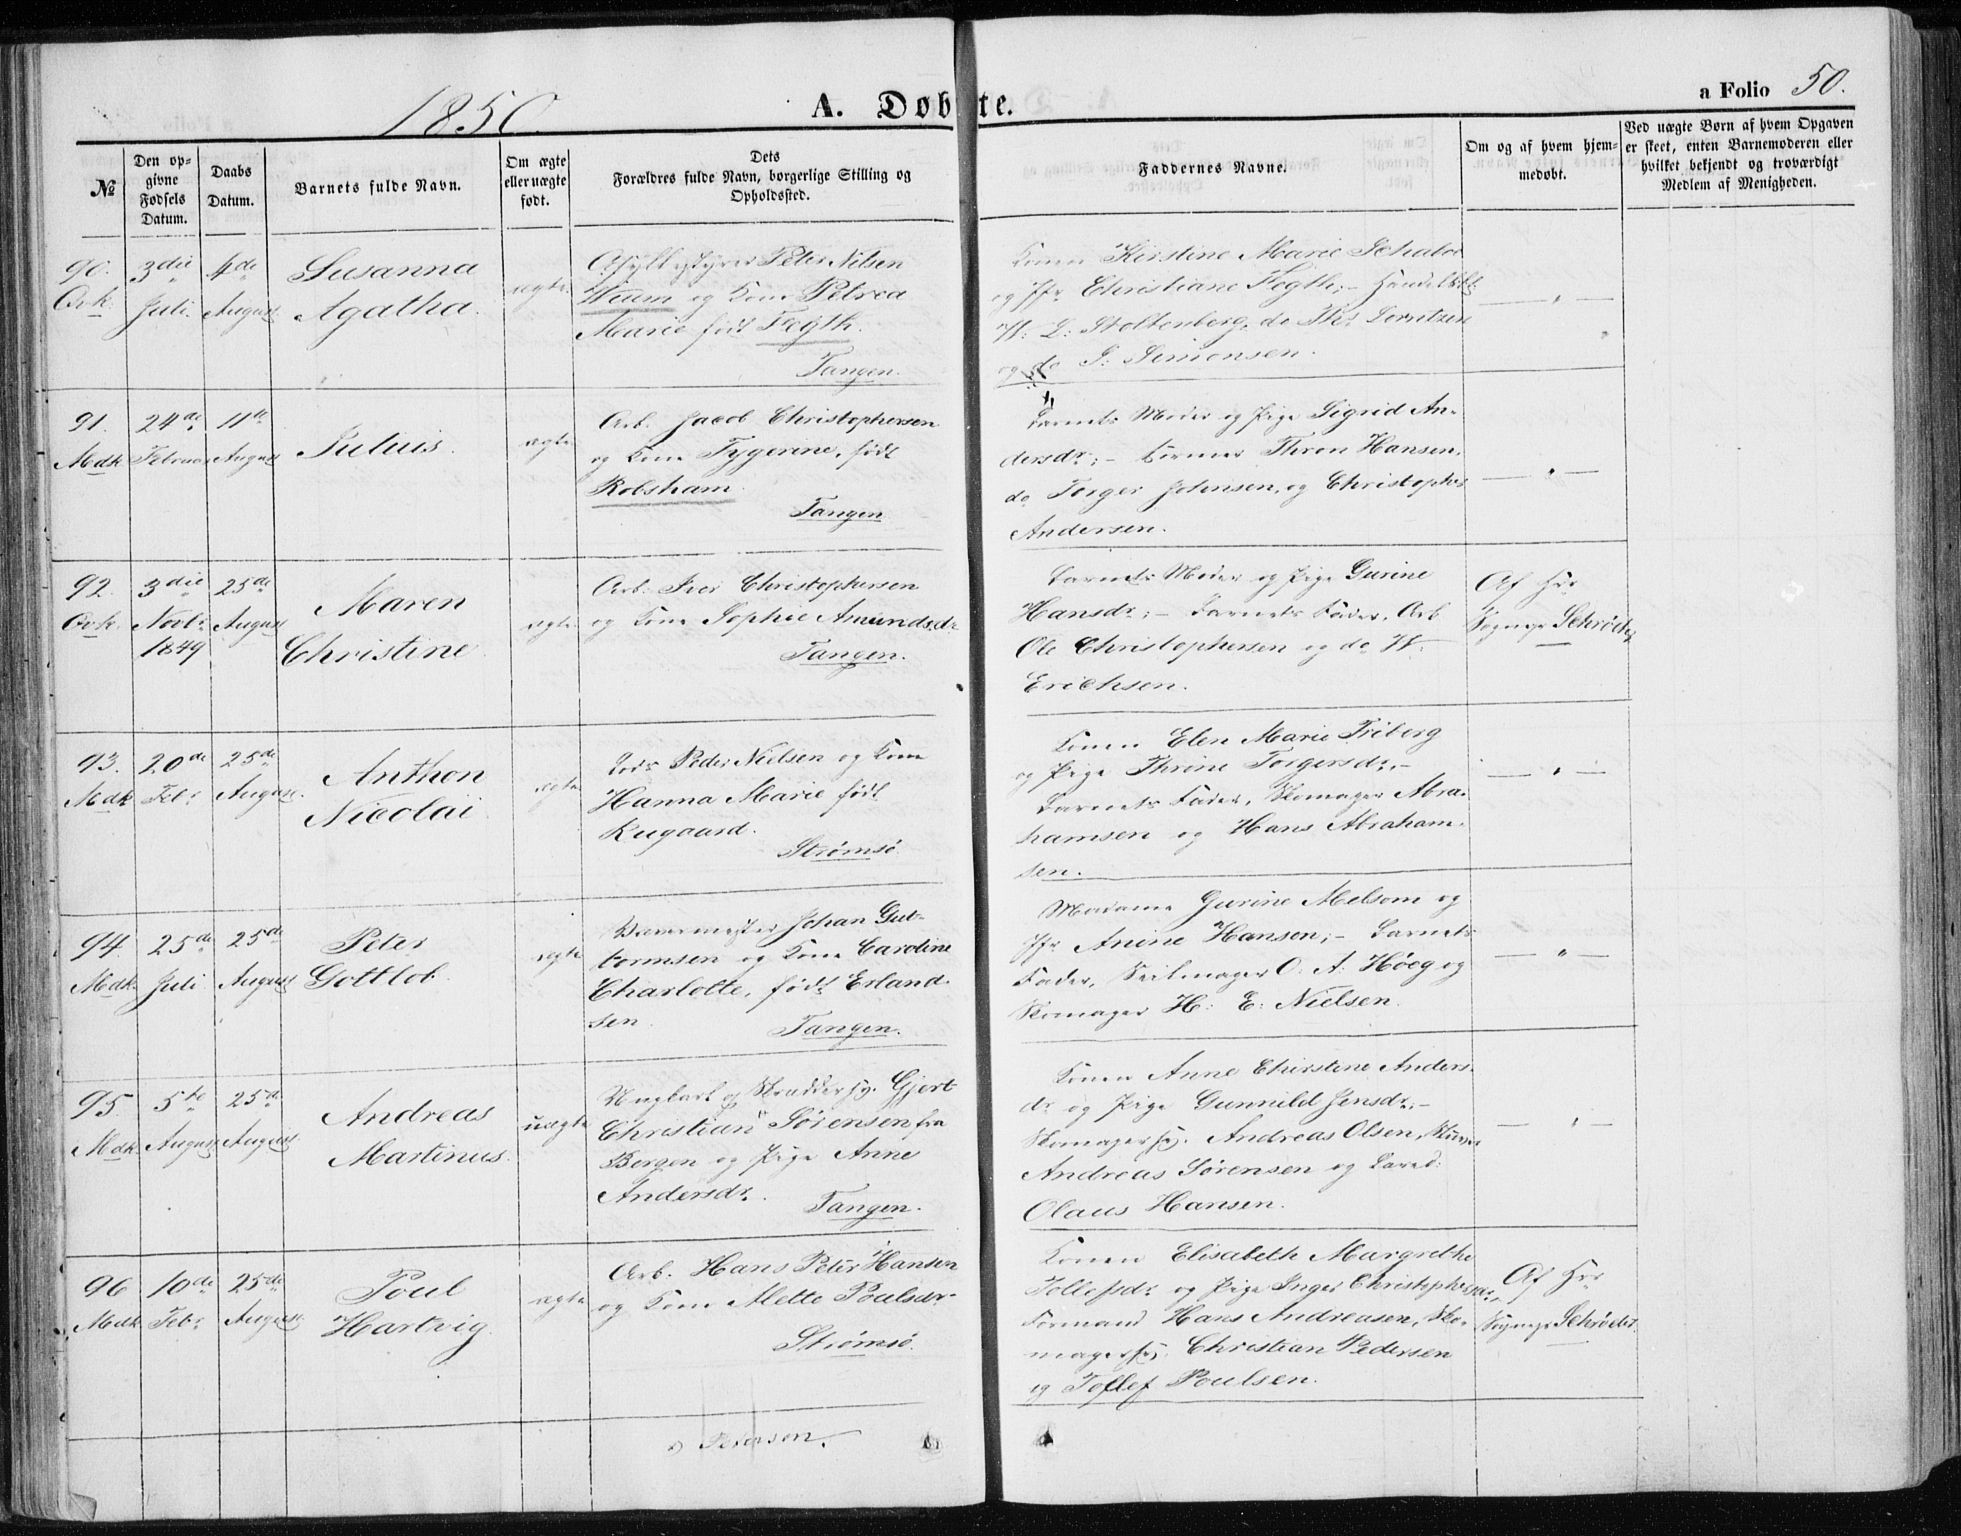 1850.
A. Døbte.
a Folio 50.
№
Den op-
givne
Fødsels
Datum.
Daabs
Datum.
Barnets fulde Navn.
Om ægte
eller uægte
født.
Dets
Forældres fulde Navn, borgerlige Stilling og
Opholdssted.
Faddernes Navne.
Om og af hvem hjem-
medøbt.
Ved uægte Børn af hvem Opgaven
er skeet, enten Barnemoderen eller
hvilket bekjendt og troværdigt
Medlem af Menigheden.
90.
Qvk.
3die
Juli.
4de
August
Susanna
Agatha.
ægte
Peter Nilsen
og Kone Petrea
Marie født Fogth.
Tangen.
Konen Kirstine Marie
og Jfr Christiane Fogth;-
L: Stoltenberg, do Ths Lorntzen
og do S: Simonsen.
— " —
91.
Mdk
24de
Februar
11te
August
Julius.
ægte
Arb. Jacob Christophersen
og Kone Tygerine, født
Robsham.
Tangen
Barnets Moder og Pige Sigrid An-
dersdr;- Thron Hansen,
do Torger Johnsen, og Christopher
Andersen.
— " —
92.
Qvk.
3die
Novbr
1849
25de
August
Maren
Christine
ægte
Arb. Iver Christophersen
og Kone Sophie Amundsdr
Tangen.
Barnets Moder og Pige Gurine
Hansdr;- Barnets Fader, Arb
Ole Christophersen og do H.
Erichsen.
Af Hr
Sognepr Schrøder
93.
Mdk
20de
Febr
25de
August.
Anthon
Nicolai
ægte
Peder Nielsen og Kone
Hanna Marie født
Rugaard.
Strømsø.
Konen Elen Marie Friberg
og Pige Thrine Torgersdr,-
Barnets Fader, Skomager Abra-
hamsen og Hans Abraham-
sen.
— " —
94.
Mdk.
25de
Juli
25de
August
Peter
Gottlob.
ægte
Johan Gut-
tormsen og Kone Caroline
Charlotte, født Erland-
sen.
Tangen.
Madame Gurine Melsom og
Jfr Anine Hansen;- Barnets
Fader, Seilmager O. A. Høeg og
Skomager H. E. Nielsen.
— " —
95.
Mdk.
5te
August
25de
August
Andreas
Martinus.
uægte
Ungkarl og Skræddersv. Gjert
Christian Sørensen fra
Bergen og Pige Anne
Andersdr.
Tangen.
Konen Anne Christine Anders-
dr og Pige Gunnild Jensdr,-
Skomagersv. Andreas Olsen,
Andreas Sørensen og
Olaus Hansen.
— " —
96
Mdk
10de
Febr
25de
August
Poul
Hartvig.
ægte
Arb. Hans Peter Hansen
og Kone Mette Poulsdr
Strømsø.
Konen Elisabeth Margrethe
Tollefsdr og Pige Inger Christophersdr,
Formand Hans Andreasen, Sko-
magersv. Christian Pedersen
og Tollef Poulsen.
Af Hr
Sognepr Schrøder.
Petersen.